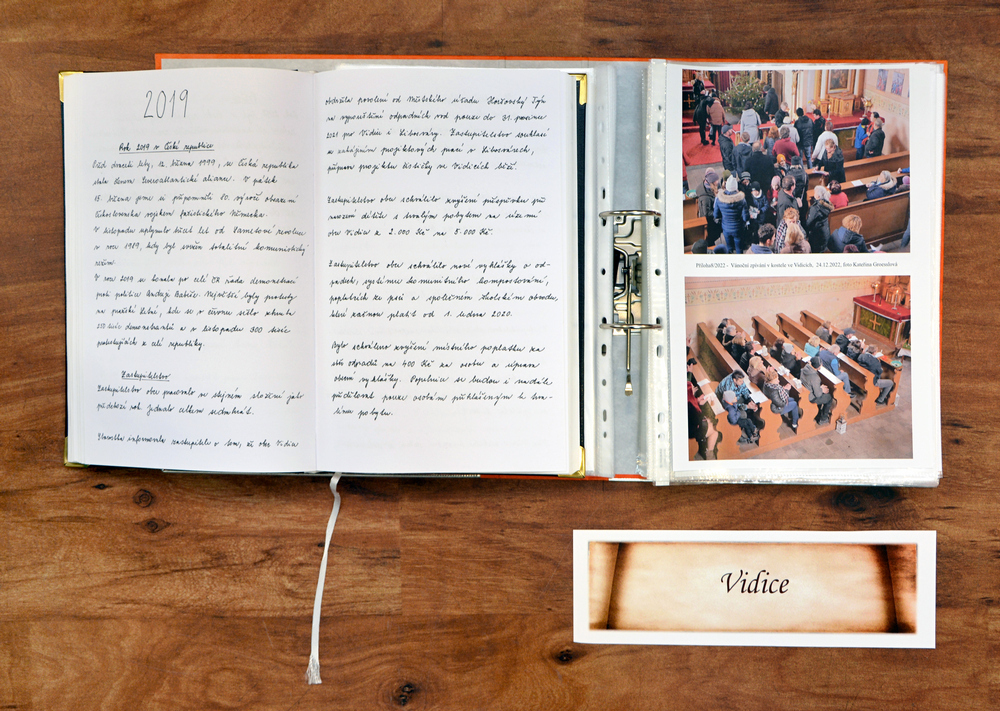 2019
Rok 2019 v České republice
Před dvaceti lety, 12. března 1999, se Česká republika
stala členem Severoatlantické aliance. V pátek
15. března jsme si připomněli 80. výročí obsazení
Československa vojskem fašistického Německa.
V listopadu uplynulo třicet let od Sametové revoluce
v roce 1989, kdy byl svržen totalitní komunistický
režim.
V roce 2019 se konala po celé ČR řada demonstrací
proti politice Andreje Babiše. Největší byly protesty
na pražské Letné, kde se v červnu sešlo zhruba
250 tisíc demonstrantů a v listopadu 300 tisíc
protestujících z celé republiky.
Zastupitelstvo
Zastupitelstvo obce pracovalo ve stejném složení jako
předchozí rok. Jednalo celkem sedmkrát.
Starostka informovala zastupitele o tom, že obec Vidice
obdržela povolení od Městského úřadu Horšovský Týn
na vypouštění odpadních vod pouze do 31. prosince
2021 pro Vidice i Libosváry. Zastupitelstvo souhlasí
se zahájením projektových prací v Libosvárech,
příprava projektu kořenové čističky ve Vidicích běží.
Zastupitelstvo obce schválilo zvýšení příspěvku při
narození dítěte s trvalým pobytem na území
obce Vidice z 2.000 Kč na 5.000 Kč.
Zastupitelstvo obce schválilo nové vyhlášky o od-
padech, systému komunitního kompostování,
poplatcích ze psů a společném školském obvodu,
které začnou platit od 1. ledna 2020.
Bylo schváleno zvýšení místního poplatku za
svoz odpadů na 400 Kč za osobu a úprava
obecní vyhlášky. Popelnice se budou i nadále
přidělovat pouze osobám přihlášeným k trva-
lému pobytu.
Příloha8/2022 - Vánoční zpívání v kostele ve Vidicích, 24.12.2022, foto Kateřina Gworeková
Vidice